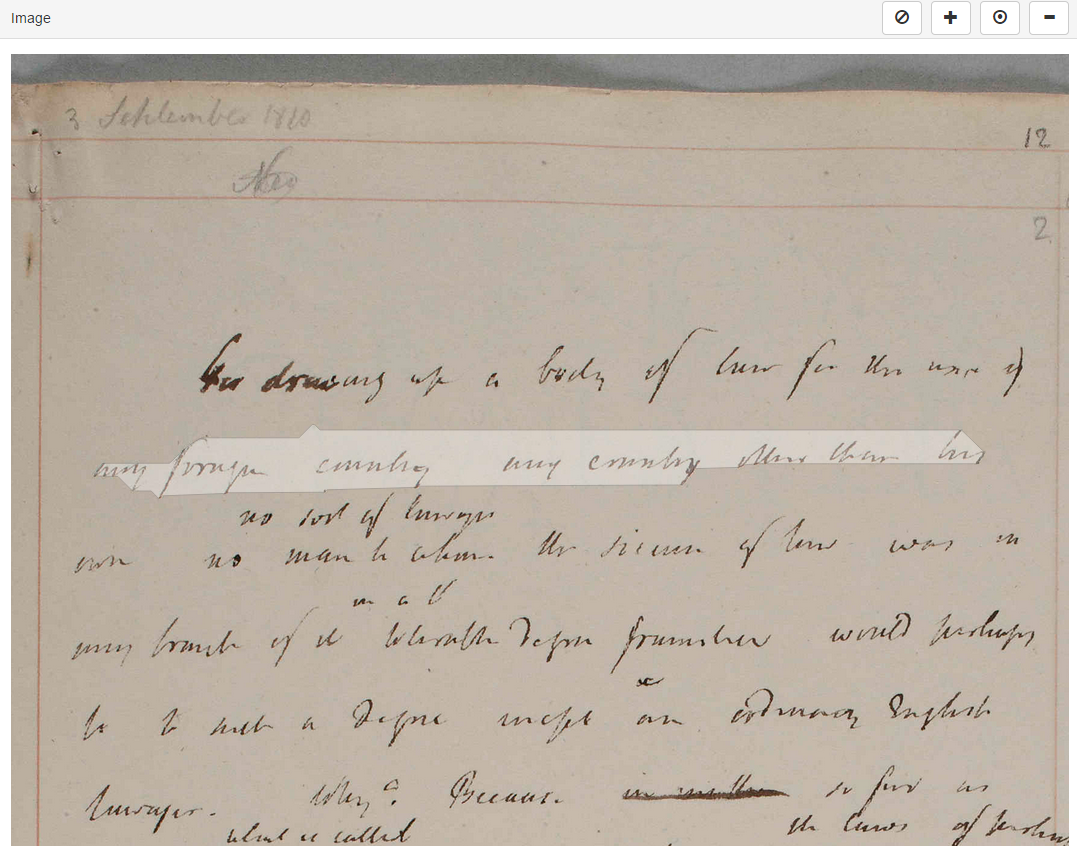 Image
3 September 1810
12
2
For drawing up a body of law for the use of
any foreign country any country other than his
no sort of lawyer
own no man to whom the science of law was in
in a th
any branch of it tolerable degree familiar would perhaps
be to such a degree inept as an ordinary English
lawyer. Why? Because in matter so far as
what is called the laws of